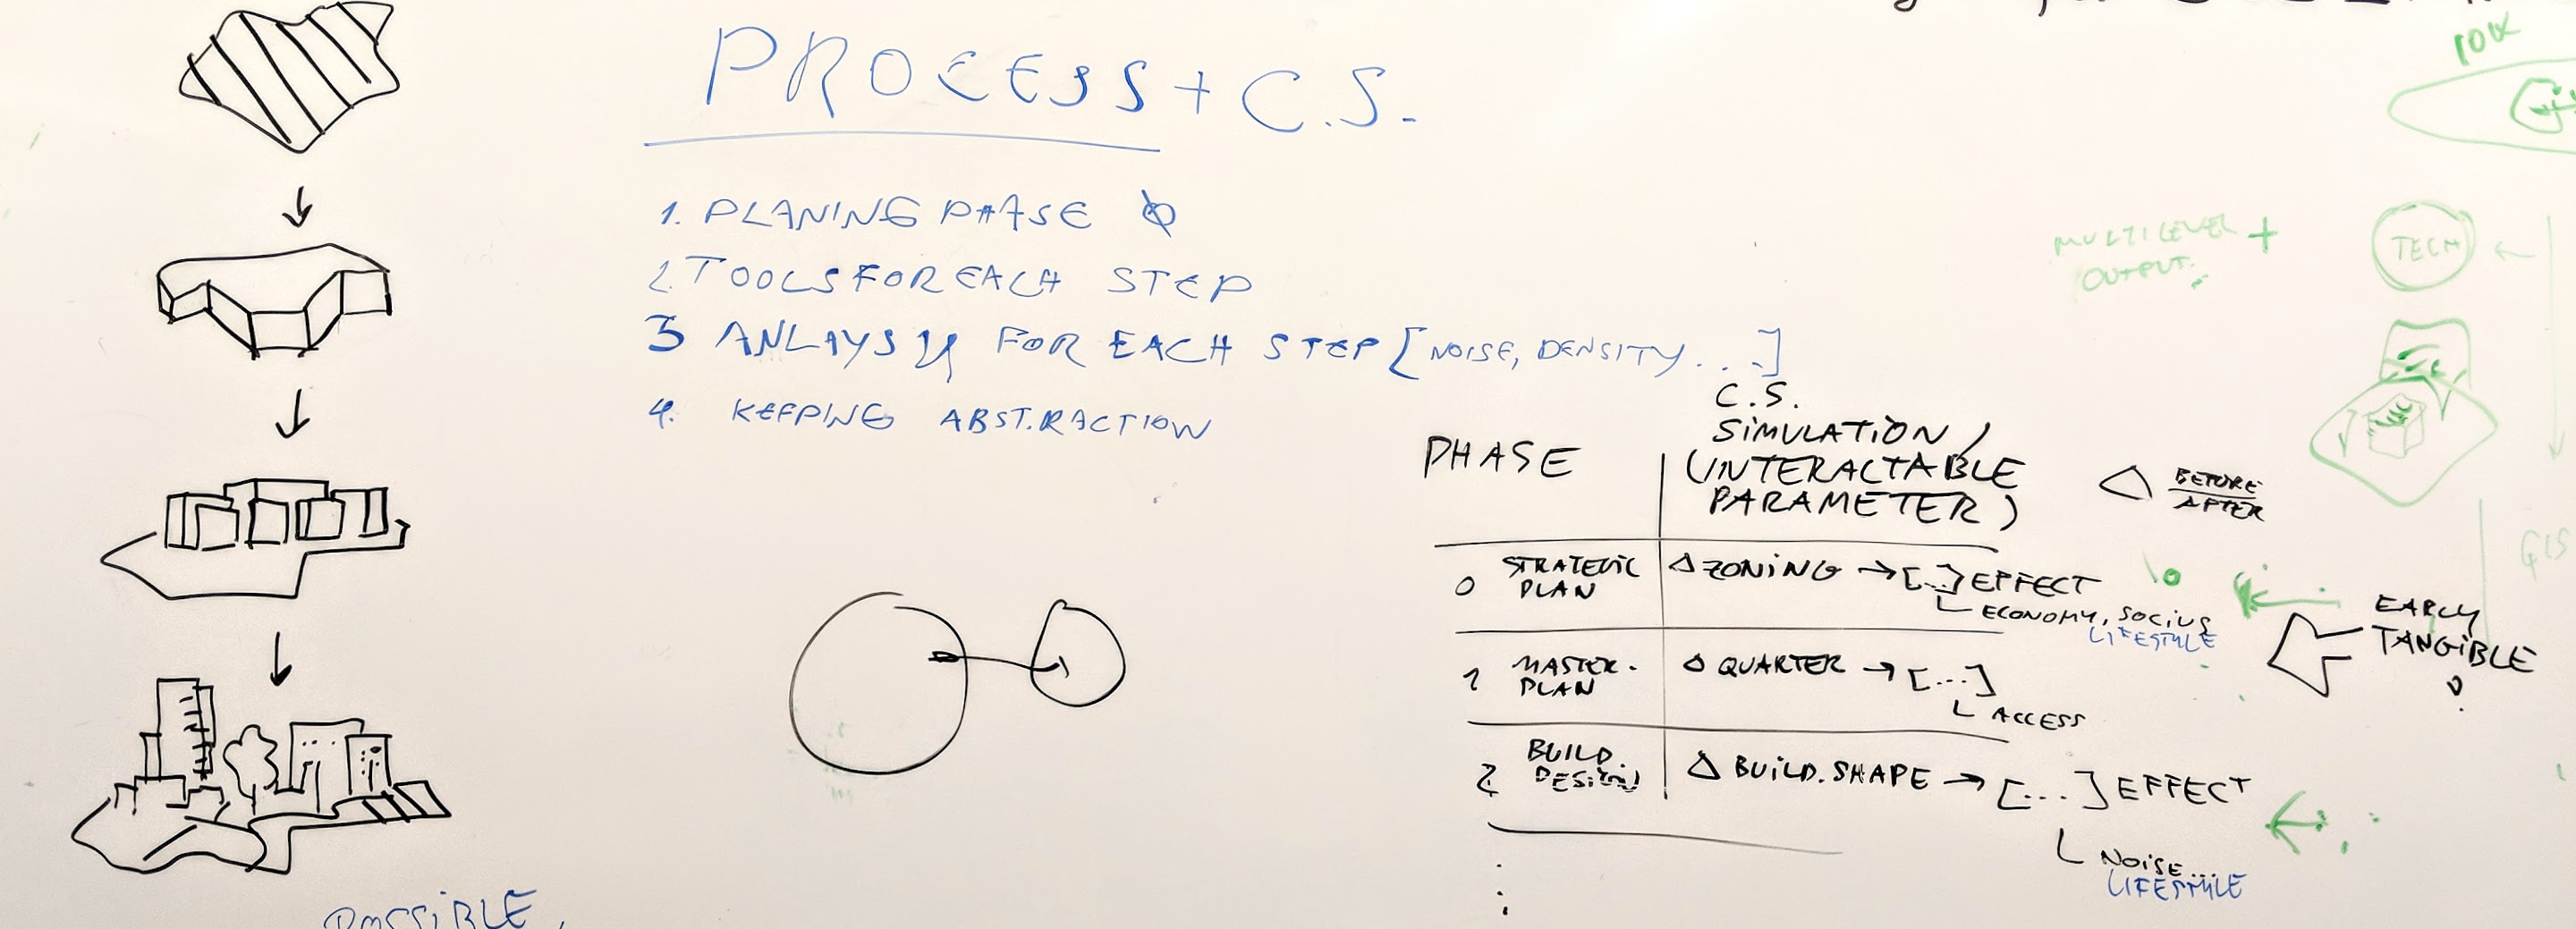 PROCESS + C.S.
1. PLANING PHASE
2. TOOLS FOR EACH STEP
3 ANLAYS FOR EACH STEP [NOISE, DENSITY...]
4. KEEPING ABSTRACTION
PHASE
C.S.
SIMULATION /
(INTERACTABLE
PARAMETER)
△ BEFORE
AFTER
0 STRATEGIC
PLAN
△ ZONING → [...] EFFECT
ECONOMY, SOCIUS
LIFESTYLE
1 MASTER-
PLAN
△ QUARTER → [...]
ACCESS
2 BUILD.
DESIGN
△ BUILD. SHAPE → [...] EFFECT
NOISE...
LIFESTYLE
EARLY
TANGIBLE
MULTILEVEL +
OUTPUT
TECH
GIS
POSSIBLE